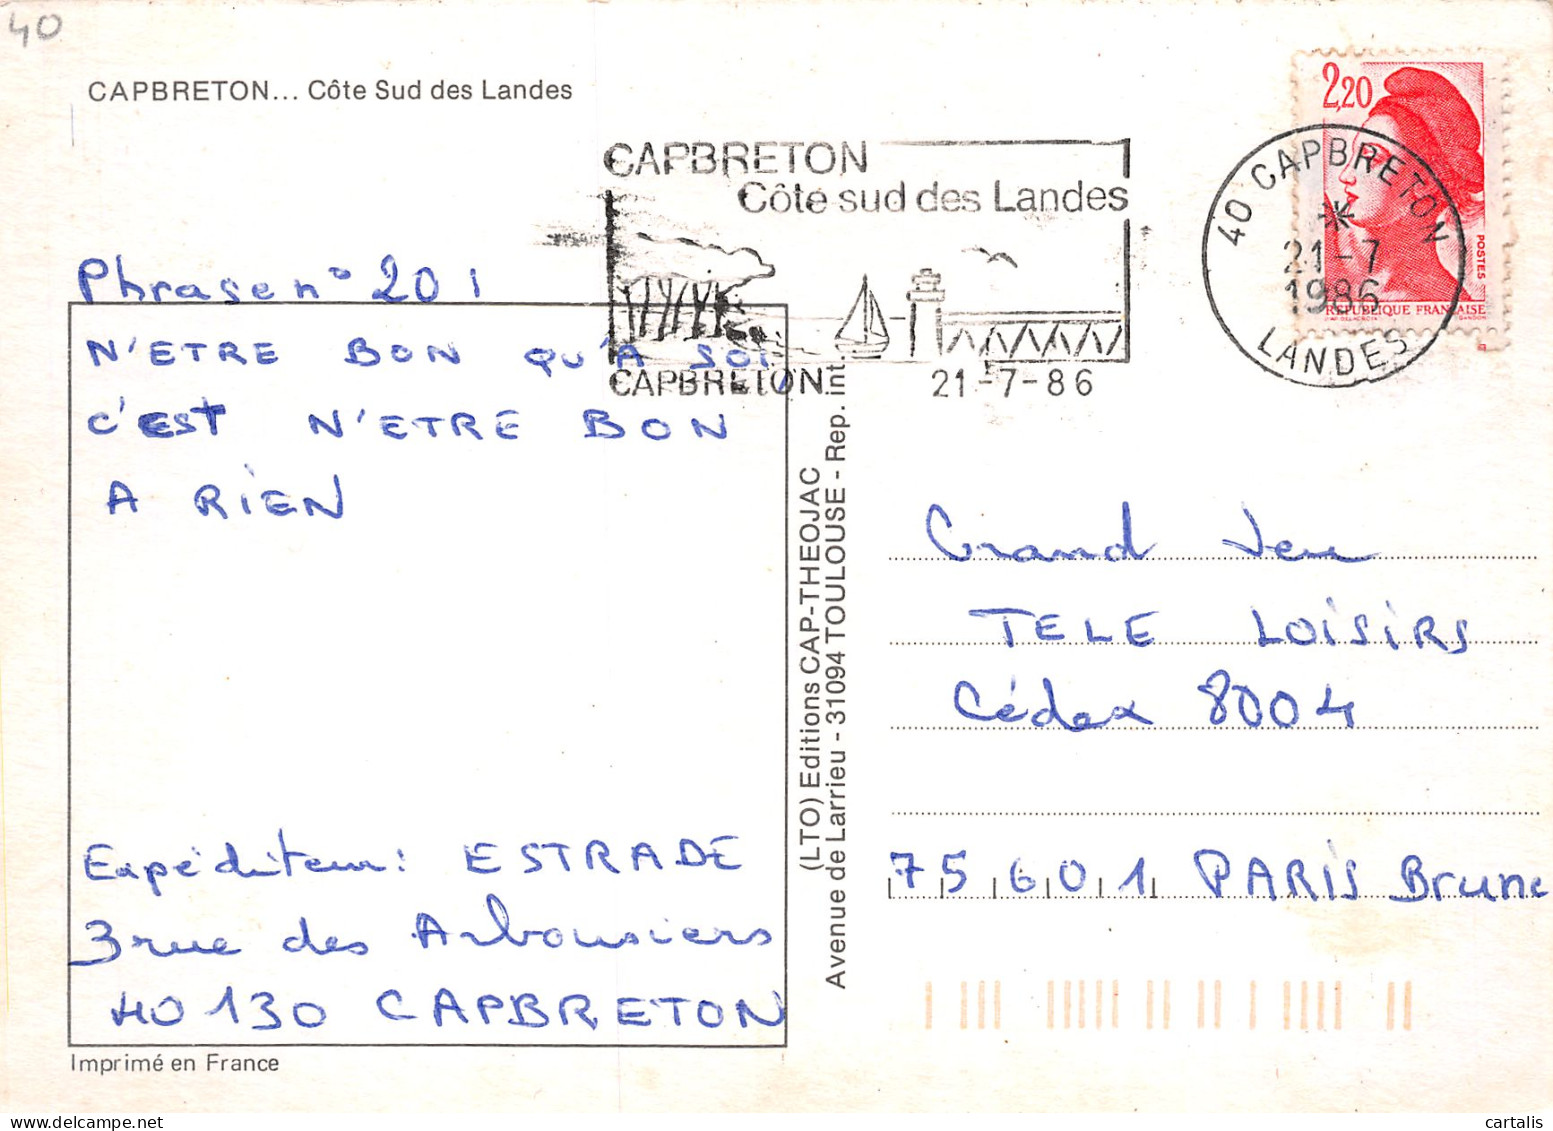 40
CAPBRETON... Côte Sud des Landes
CAPBRETON
Côte sud des Landes
CAPBRETON 21-7-86
2,20
POSTES
REPUBLIQUE FRANÇAISE
40 CAPBRETON
21-7
1986
LANDES
Phrase n° 201
N'ETRE BON QU'A SOI,
C'EST N'ETRE BON
A RIEN
Expéditeur: ESTRADE
3 rue des Arbousiers
40130 CAPBRETON
Imprimé en France
(LTO) Editions CAP-THEOJAC
Avenue de Larrieu - 31094 TOULOUSE - Rep. int.
Grand Jeu
TELE LOISIRS
Cédex 8004
75601 PARIS Brune
cartalis